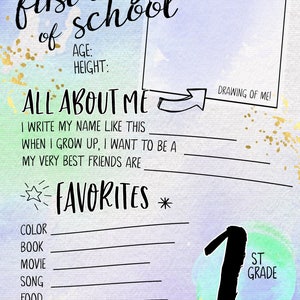 first
of school
AGE:
HEIGHT:
DRAWING OF ME!
ALL ABOUT ME
I WRITE MY NAME LIKE THIS
WHEN I GROW UP, I WANT TO BE A
MY VERY BEST FRIENDS ARE
FAVORITES
COLOR
BOOK
MOVIE
SONG
FOOD
1ST
GRADE